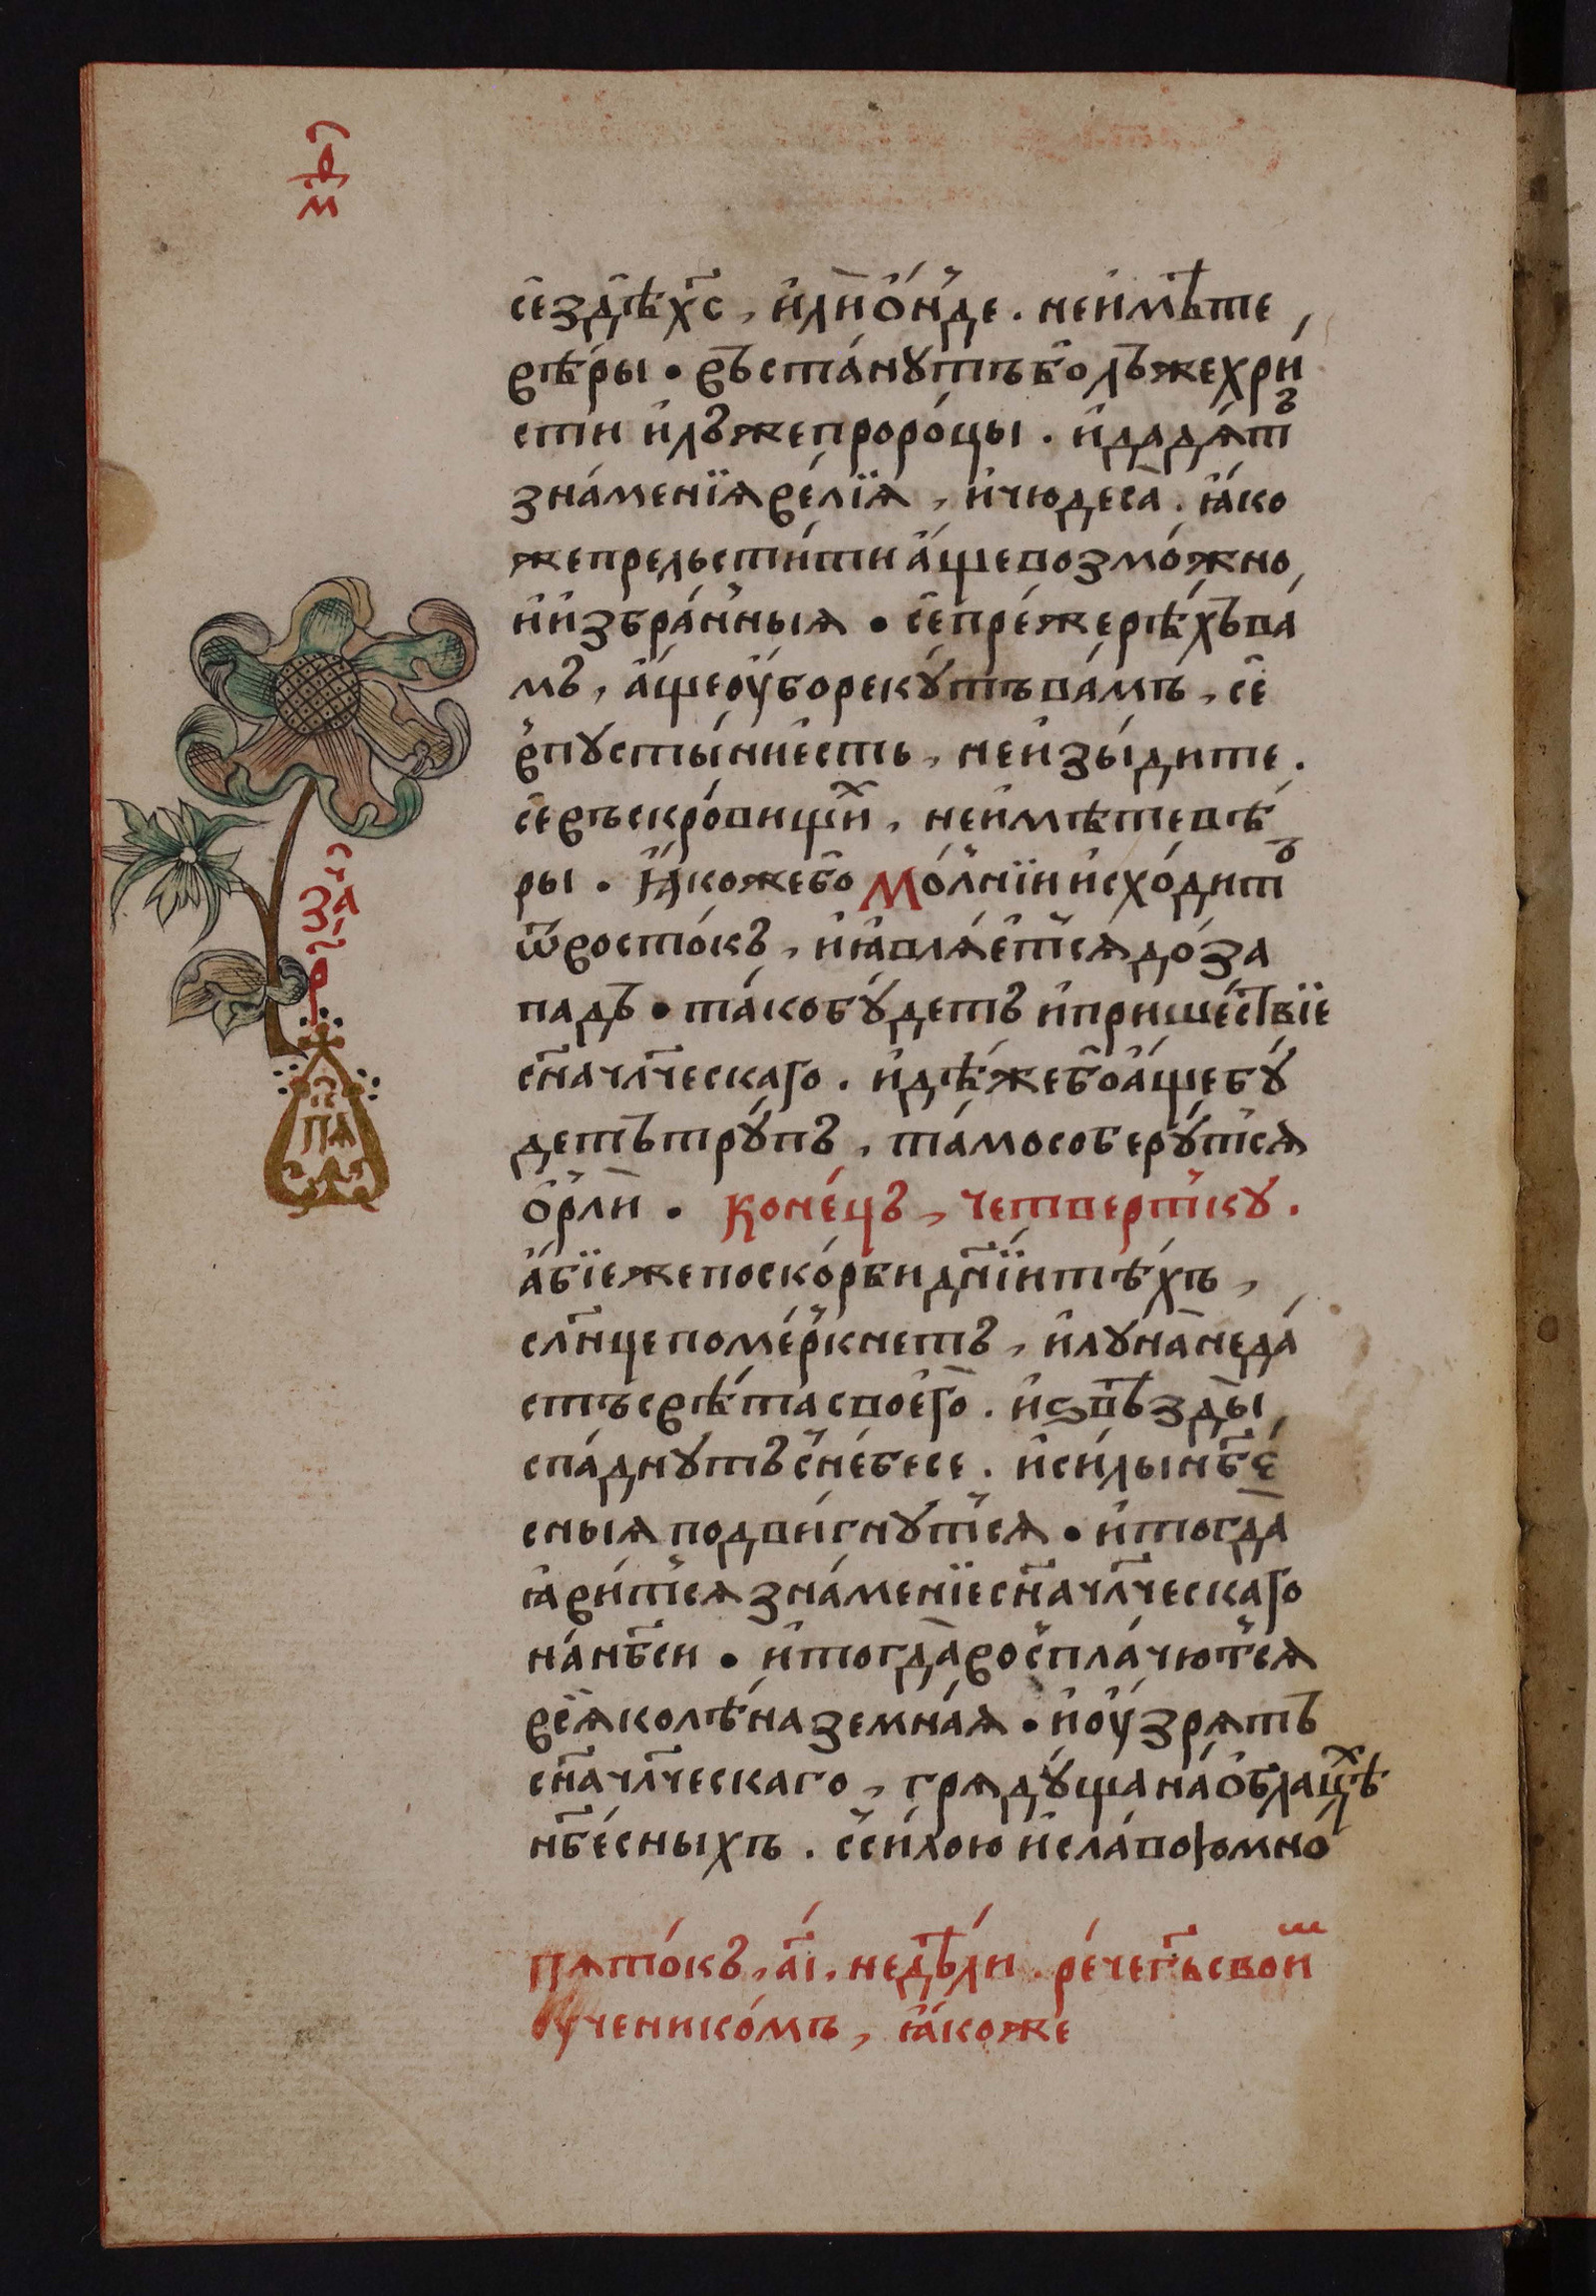 с̑езд̑ѣх҃с, и҆лѝ ѻ҆́нде. не и҆мѣ́те
вѣ́ры • въста́нутъ бо̀ лъжехри
стѝ и҆ лъжепроро́цы. и҆ дадѧ́тъ
зна́менїѧ ве́лїѧ, и҆ чюдеса̀. ꙗ҆́ко
же прельсти́ти а҆́ще возмо́жно,
и҆ и҆збра́нныѧ • се̑ пре́же рѣ́хъ ва́
мъ, а҆́ще ѹ҆̀бо реку́тъ ва́мъ, се̑
в пусты́ни е҆́сть, не и҆зы́дите.
се̑ въ скро́вищихъ, не и҆мѣ́те вѣ́
ры. Ꙗ҆́коже бо̀ мо́лнїи и҆схо́дитъ
ѿ восто́къ, и҆ ꙗ҆влѧ́е҆тсѧ до за́
падъ • та́ко бу́детъ и҆ прише́ствїе
сн҃а чл҃ческаго. и҆дѣ́же бо̀ а҆́ще бу́
детъ тру́пъ, та́мо соберу́тсѧ
ѻ҆рлѝ. коне́цъ, четвертку.
а҆́бїе же по ско́рби дн҃їи тѣ́хъ,
сл҃нце поме́ркнетъ, и҆ луна̀ не да́
стъ свѣ́та своегѡ̀. и҆ ѕвѣзды̀
спа́днутъ с не́бесе. и҆ си́лы нб҃е́
сныѧ подви́гнутсѧ • и҆ тогда̀
ꙗ҆ви́тсѧ зна́менїе сн҃а чл҃ческаго
на́ нб҃си • и҆ тогда̀ воспла́чютсѧ
всѧ̀ колѣ́на земна́ѧ • и҆ ѹ҆́зрѧтъ
сн҃а чл҃ческаго, грѧду́ща на́ ѻ҆блацѣхъ
нб҃е́сныхъ. с си́лою и҆ сла́вою мно́
пѧто́къ, а҃і, недѣ́ли. ре́че гь҃ свои́мъ
Ѹченико́мъ, ꙗ҆́коже
за҃
р҃
па҃